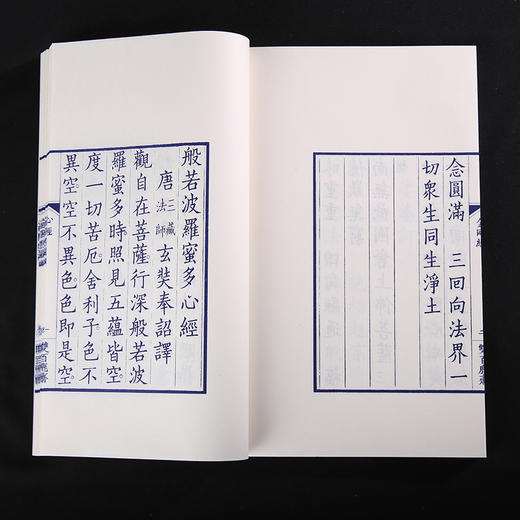 念圓滿 三回向法界一
切衆生同生淨土
般若波羅蜜多心經
唐三藏法師玄奘奉詔譯
觀自在菩薩行深般若波
羅蜜多時照見五蘊皆空
度一切苦厄舍利子色不
異空空不異色色即是空